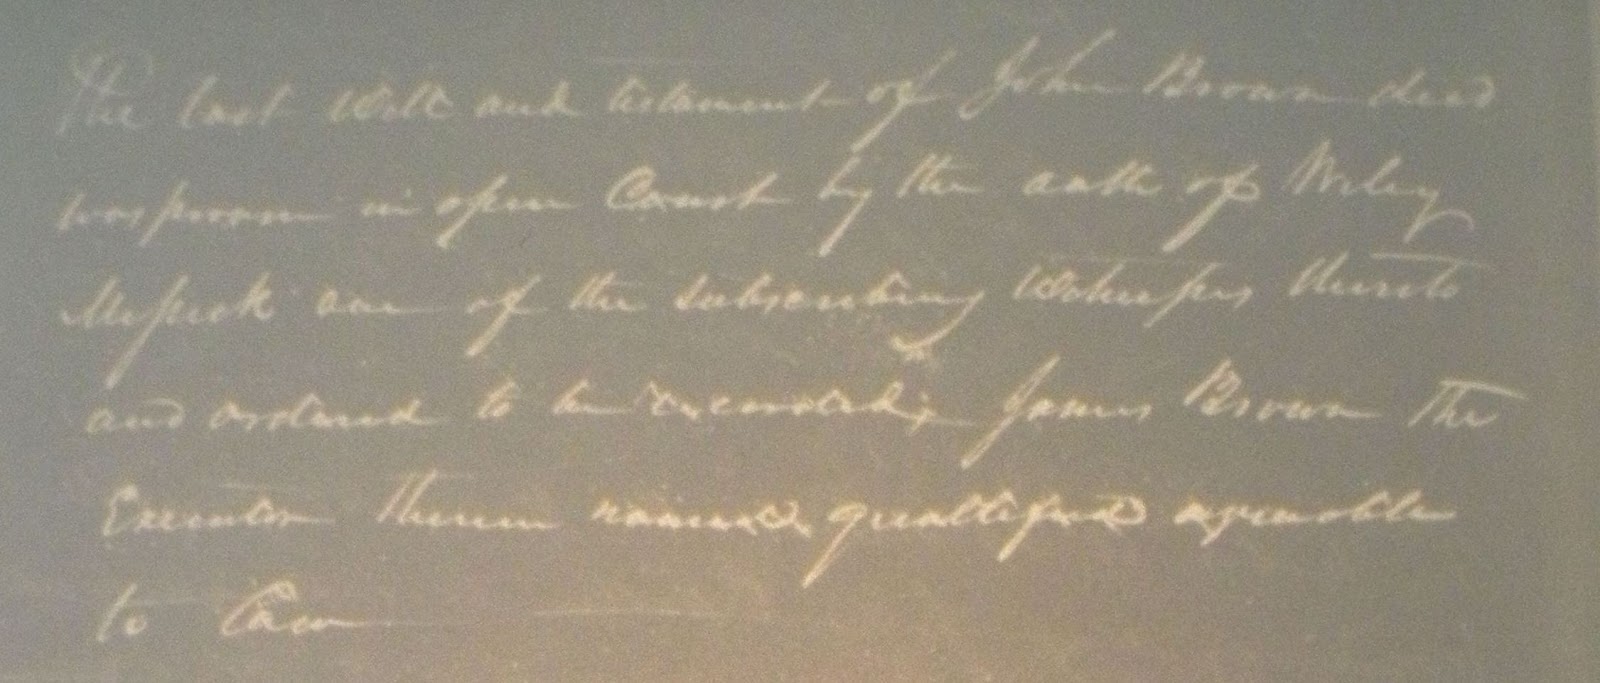 The last Will and testament of John Brown decd
was proven in open Court by the oath of Wiley
Messick one of the subscribing Witnesses thereto
and ordered to be recorded, James Brown the
Executor therein named, qualified agreeable
to Law